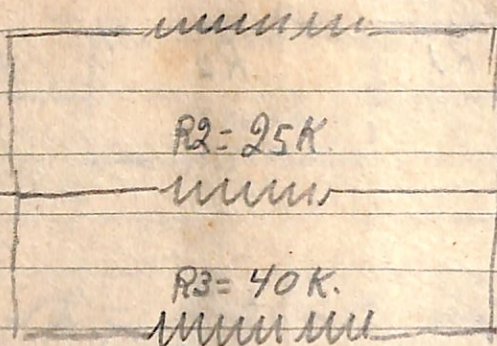 R2=25K
R3=40K.